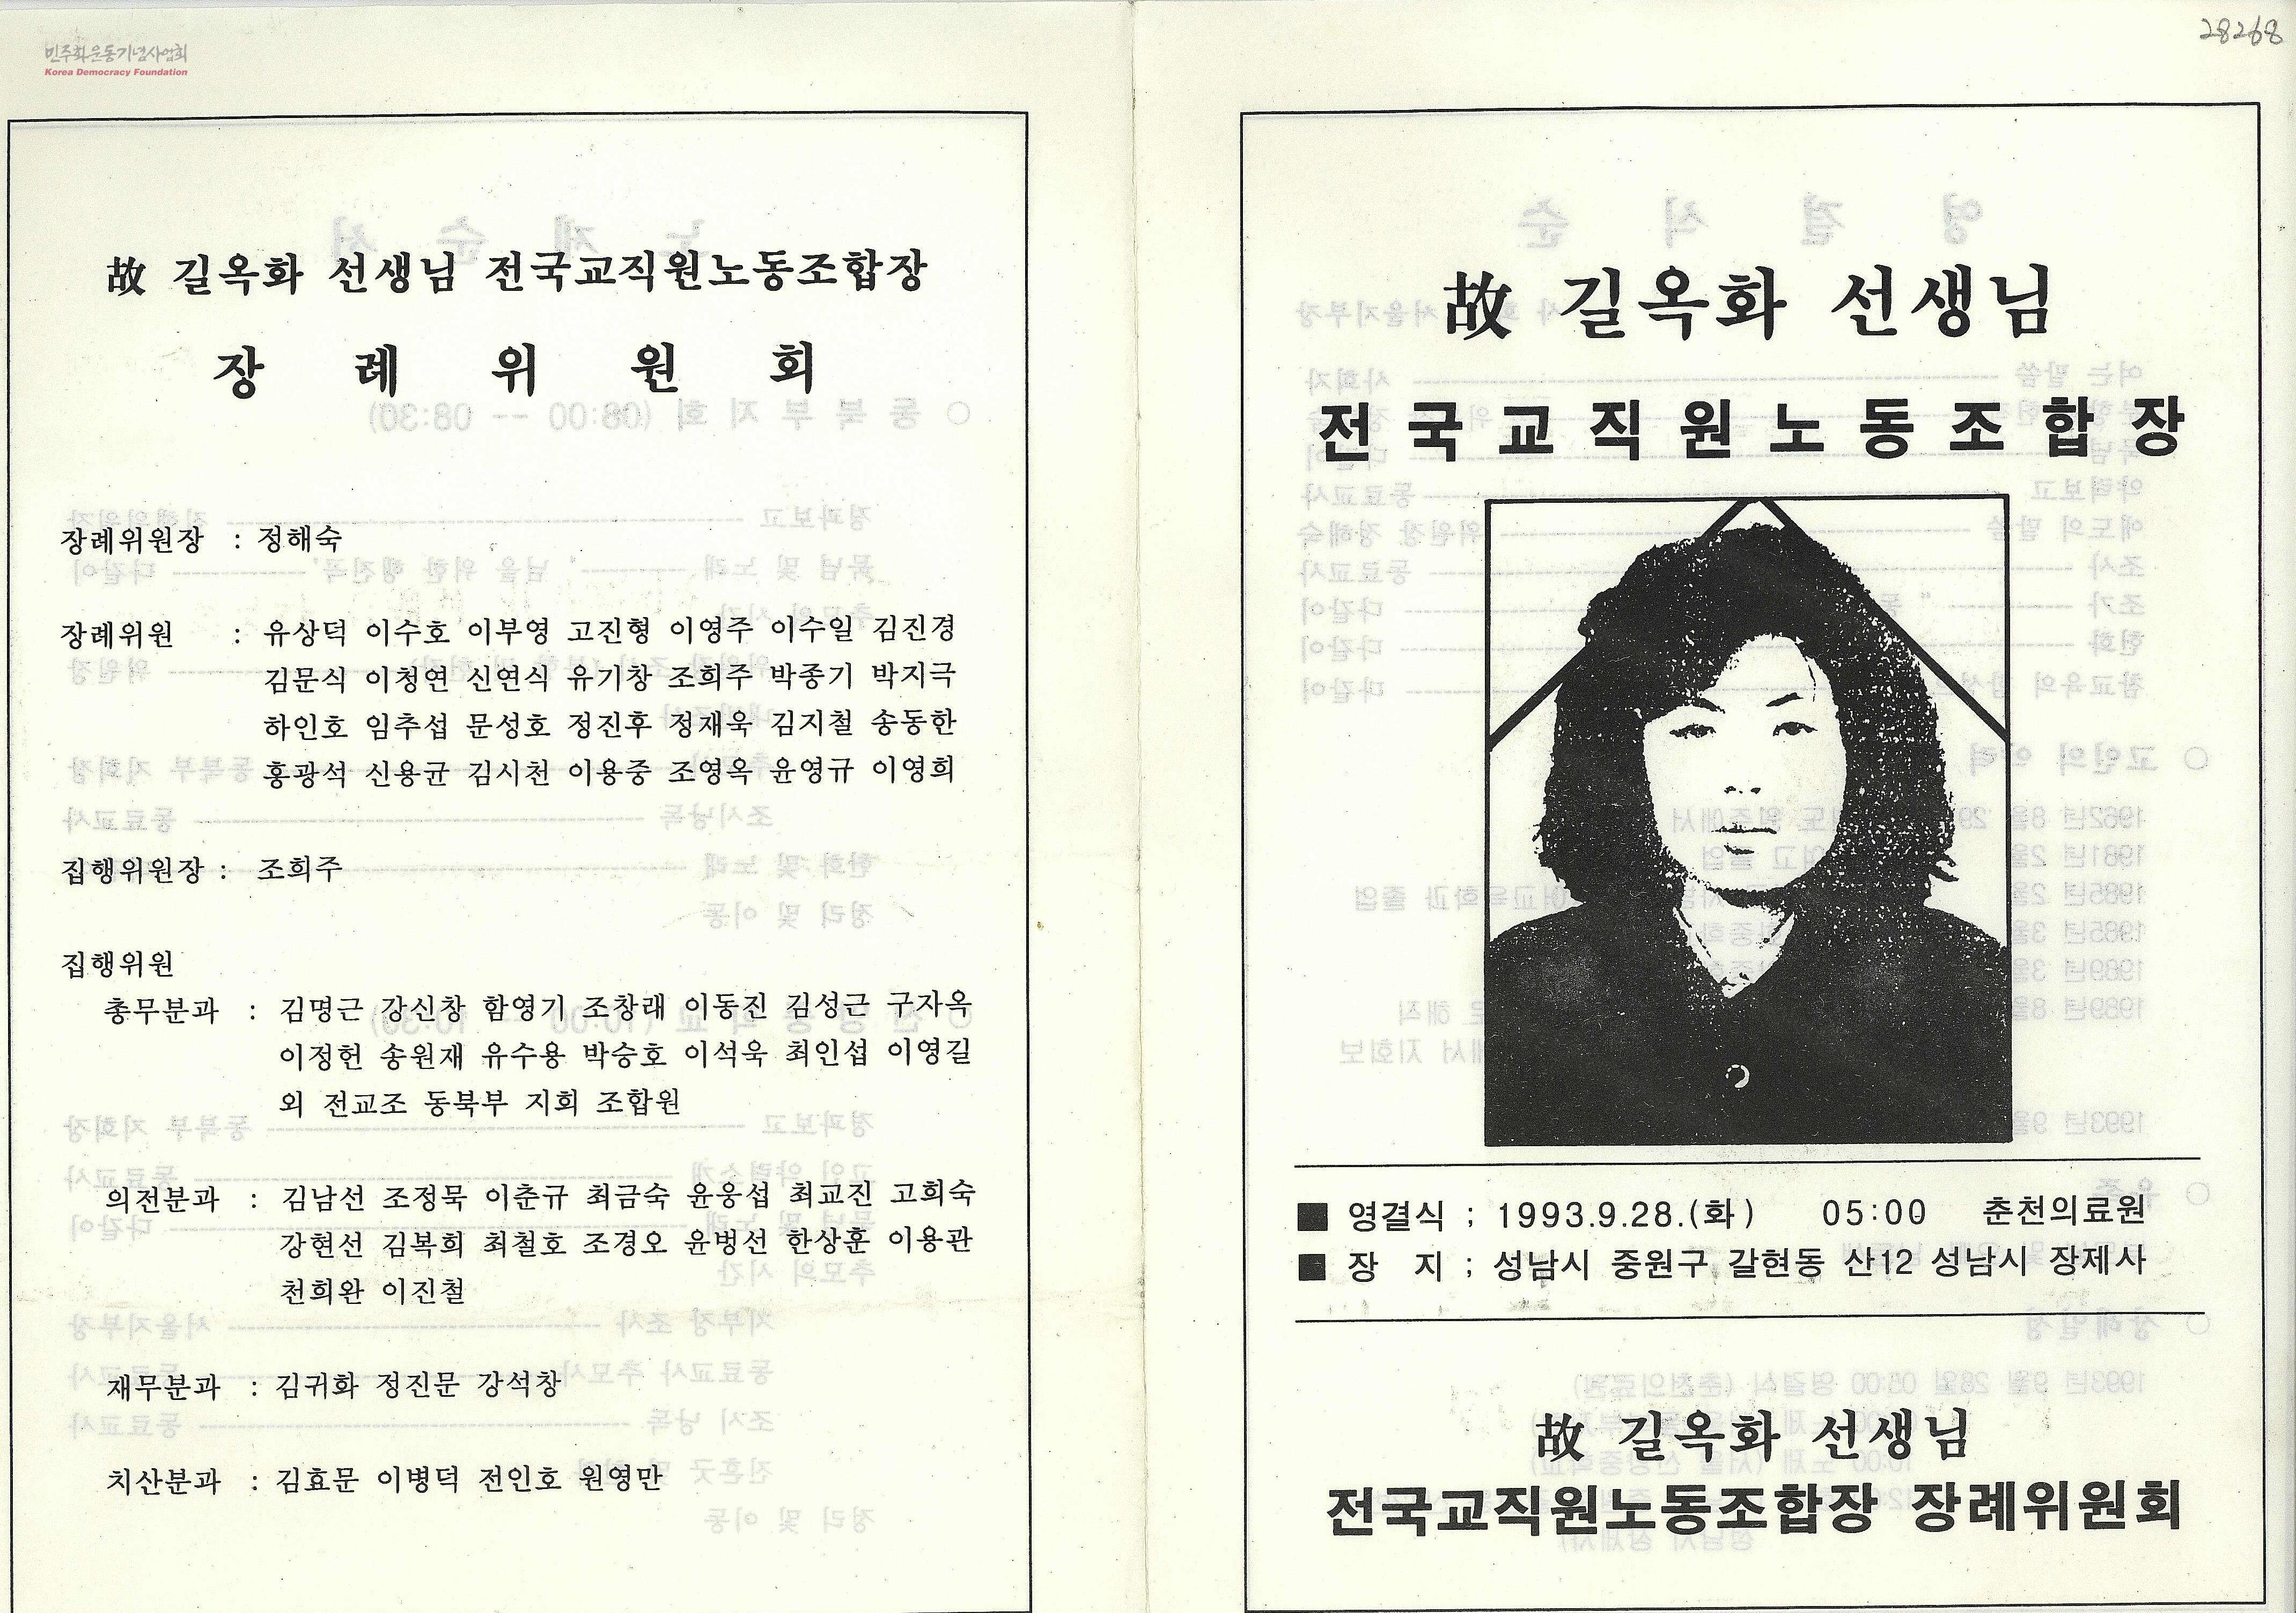 민주화운동기념사업회
Korea Democracy Foundation
28268
故 길옥화 선생님 전국교직원노동조합장
장 례 위 원 회
장례위원장 : 정해숙
장례위원 : 유상덕 이수호 이부영 고진형 이영주 이수일 김진경
김문식 이청연 신연식 유기창 조희주 박종기 박지극
하인호 임추섭 문성호 정진후 정재욱 김지철 송동한
홍광석 신용균 김시천 이용중 조영옥 윤영규 이영희
집행위원장 : 조희주
집행위원
총무분과 : 김명근 강신창 함영기 조창래 이동진 김성근 구자옥
이정헌 송원재 유수용 박승호 이석욱 최인섭 이영길
외 전교조 동북부 지회 조합원
의전분과 : 김남선 조정묵 이춘규 최금숙 윤웅섭 최교진 고희숙
강현선 김복희 최철호 조경오 윤병선 한상훈 이용관
천희완 이진철
재무분과 : 김귀화 정진문 강석창
치산분과 : 김효문 이병덕 전인호 원영만
故 길옥화 선생님
전국교직원노동조합장
■ 영결식 ; 1993.9.28.(화) 05:00 춘천의료원
■ 장 지 ; 성남시 중원구 갈현동 산12 성남시 장제사
故 길옥화 선생님
전국교직원노동조합장 장례위원회